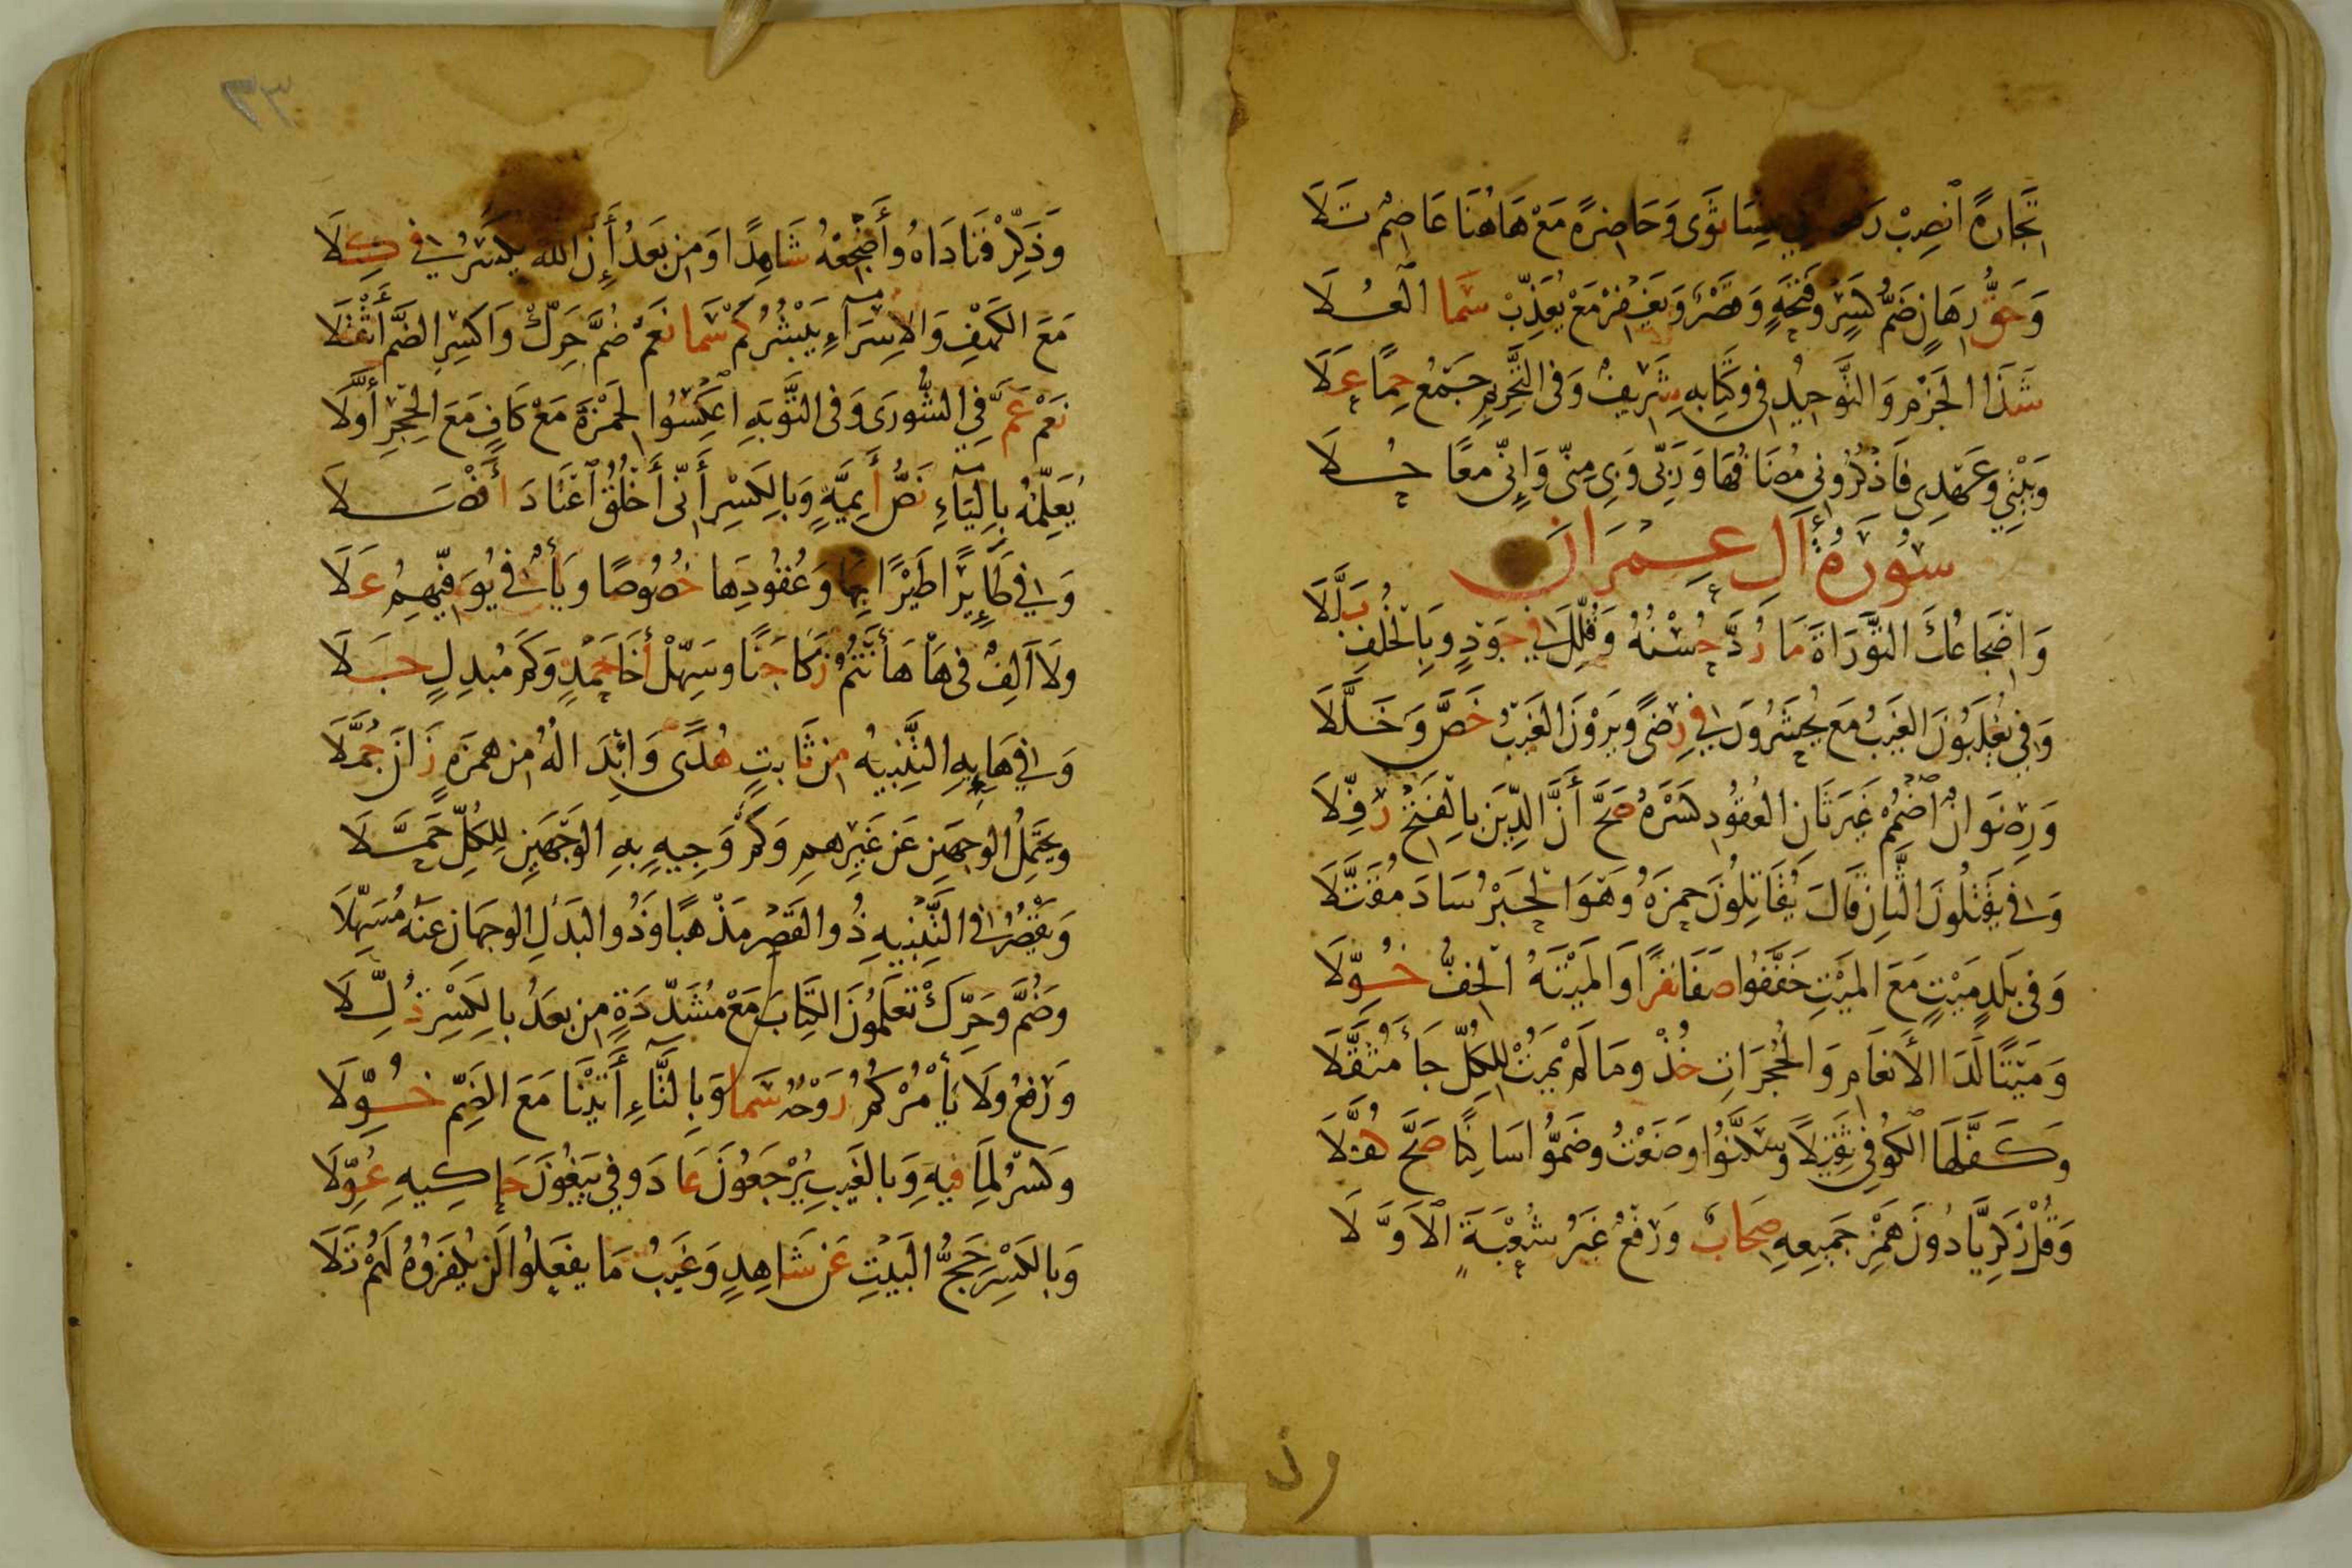 تِجَارَةً انْصِبْ رَفْعُهُ فِي النِّسَا ثَوَى وَحَاضِرَةً مَعْ هَاهُنَا عَاصِمٌ تَلَا
وَحَقُّ رِهَانٍ ضَمُّ كَسْرٍ وَفَتْحَةٍ وَقَصْرٌ وَيَغْفِرْ مَعْ يُعَذِّبْ سَمَا الْعُلَا
شَذَا الْجَزْمِ وَالتَّوْحِيدُ فِي وَكِتَابِهِ شَرِيفٌ وَفِي التَّحْرِيمِ جَمْعُ حِمًا عَلَا
وَبَيْتِي وَعَهْدِي فَاذْكُرُونِي مُضَافُهَا وَرَبِّي وَبِي مِنِّي وَإِنِّي مَعًا حُلَا
سُورَةُ آلِ عِمْرَانَ
وَإِضْجَاعُكَ التَّوْرَاةَ مَا رُدَّ حُسْنُهُ وَقُلِّلَ فِي جَوْدٍ وَبِالْخُلْفِ بَلَّلَا
وَفِي تُغْلَبُونَ الْغَيْبُ مَعْ يُحْشَرُونَ فِي رِضًى وَيَرَوْنَ الْغَيْبُ خَصَّ وَخَلَّلَا
وَرِضْوَانٌ اضْمُمْ غَيْرَ ثَانِ الْعُقُودِ كَسْرَهُ صَحَّ أَنَّ الدِّينَ بِالْفَتْحِ رُفِّلَا
وَفِي يَقْتُلُونَ الثَّانِ قَالَ يُقَاتِلُونَ حَمْزَةُ وَهْوَ الْحَبْرُ سَادَ مُقَتَّلَا
وَفِي بَلَدٍ مَيْتٍ مَعَ الْمَيْتِ خَفَّفُوا صَفَا نَفَرًا وَالْمَيْتَةُ الْخِفُّ خُوِّلَا
وَمَيْتًا لَدَى الْأَنْعَامِ وَالْحُجُرَاتِ خُذْ وَمَا لَمْ يَمُتْ لِلْكُلِّ جَاءَ مُثَقَّلَا
وَكَفَّلَهَا الْكُوفِي ثَقِيلًا وَسَكَّنُوا وَضَعْتُ وَضَمُّوا سَاكِنًا صَحَّ كُفَّلَا
وَقُلْ زَكَرِيَّا دُونَ هَمْزِ جَمِيعِهِ صِحَابٌ وَرَفْعٌ غَيْرُ شُعْبَةَ الْأَوَّلَا
٣٣
وَذَكِّرْ فَنَادَاهُ وَأَضْجِعْهُ شَاهِدًا وَمِنْ بَعْدُ أَنَّ اللَّهَ يُكْسَرُ فِي كِلَا
مَعَ الْكَهْفِ وَالْإِسْرَاءِ يَبْشُرُ كَمْ سَمَا نَعَمْ ضُمَّ حَرِّكْ وَاكْسِرِ الضَّمَّ أَثْقَلَا
نَعَمْ عَمَّ فِي الشُّورَى وَفِي التَّوْبَةِ اعْكِسُوا لِحَمْزَةَ مَعْ كَافٍ مَعَ الْحِجْرِ أَوَّلَا
يُعَلِّمُهُ بِالْيَاءِ نَصُّ أَئِمَّةٍ وَبِالْكَسْرِ أَنِّي أَخْلُقُ اعْتَادَ أَفْصَلَا
وَفِي طَائِرًا طَيْرًا بِهَا وَعُقُودِهَا خُصُوصًا وَيَاءٌ فِي يُوَفِّيهِمُ عَلَا
وَلَا أَلِفٌ فِي هَا هَأَنْتُمْ زَكَا جَنًا وَسَهِّلْ أَخَا حَمْدٍ وَكَمْ مُبْدِلٍ جَلَا
وَفِي هَائِهِ التَّنْبِيهُ مِنْ ثَابِتٍ هُدًى وَإِبْدَالُهُ مِنْ هَمْزَةٍ زَانَ جَمَّلَا
وَيَحْتَمِلُ الْوَجْهَيْنِ عَنْ غَيْرِهِمْ وَكَمْ وَجِيهٍ بِهِ الْوَجْهَيْنِ لِلْكُلِّ حَمَّلَا
وَيَقْصُرُ فِي التَّنْبِيهِ ذُو الْقَصْرِ مَذْهَبًا وَذُو الْبَدَلِ الْوَجْهَانِ عَنْهُ مُسَهِّلَا
وَضُمَّ وَحَرِّكْ تَعْلَمُونَ الْكِتَابَ مَعْ مُشَدَّدَةٍ مِنْ بَعْدُ بِالْكَسْرِ ذُلِّلَا
وَرَفْعُ وَلَا يَأْمُرْكُمُ رُوحُهُ سَمَا وَبِالتَّاءِ آتَيْنَا مَعَ الضَّمِّ خُوِّلَا
وَكَسْرُ لِمَا فِيهِ وَبِالْغَيْبِ يُرْجَعُونَ عَادَ وَفِي يَبْغُونَ حَاكِيهِ عُوِّلَا
وَبِالْكَسْرِ حَجُّ الْبَيْتِ عَنْ شَاهِدٍ وَغَيْبُ مَا يَفْعَلُوا لَنْ يُكْفَرُوهُ لَهُمْ تَلَا